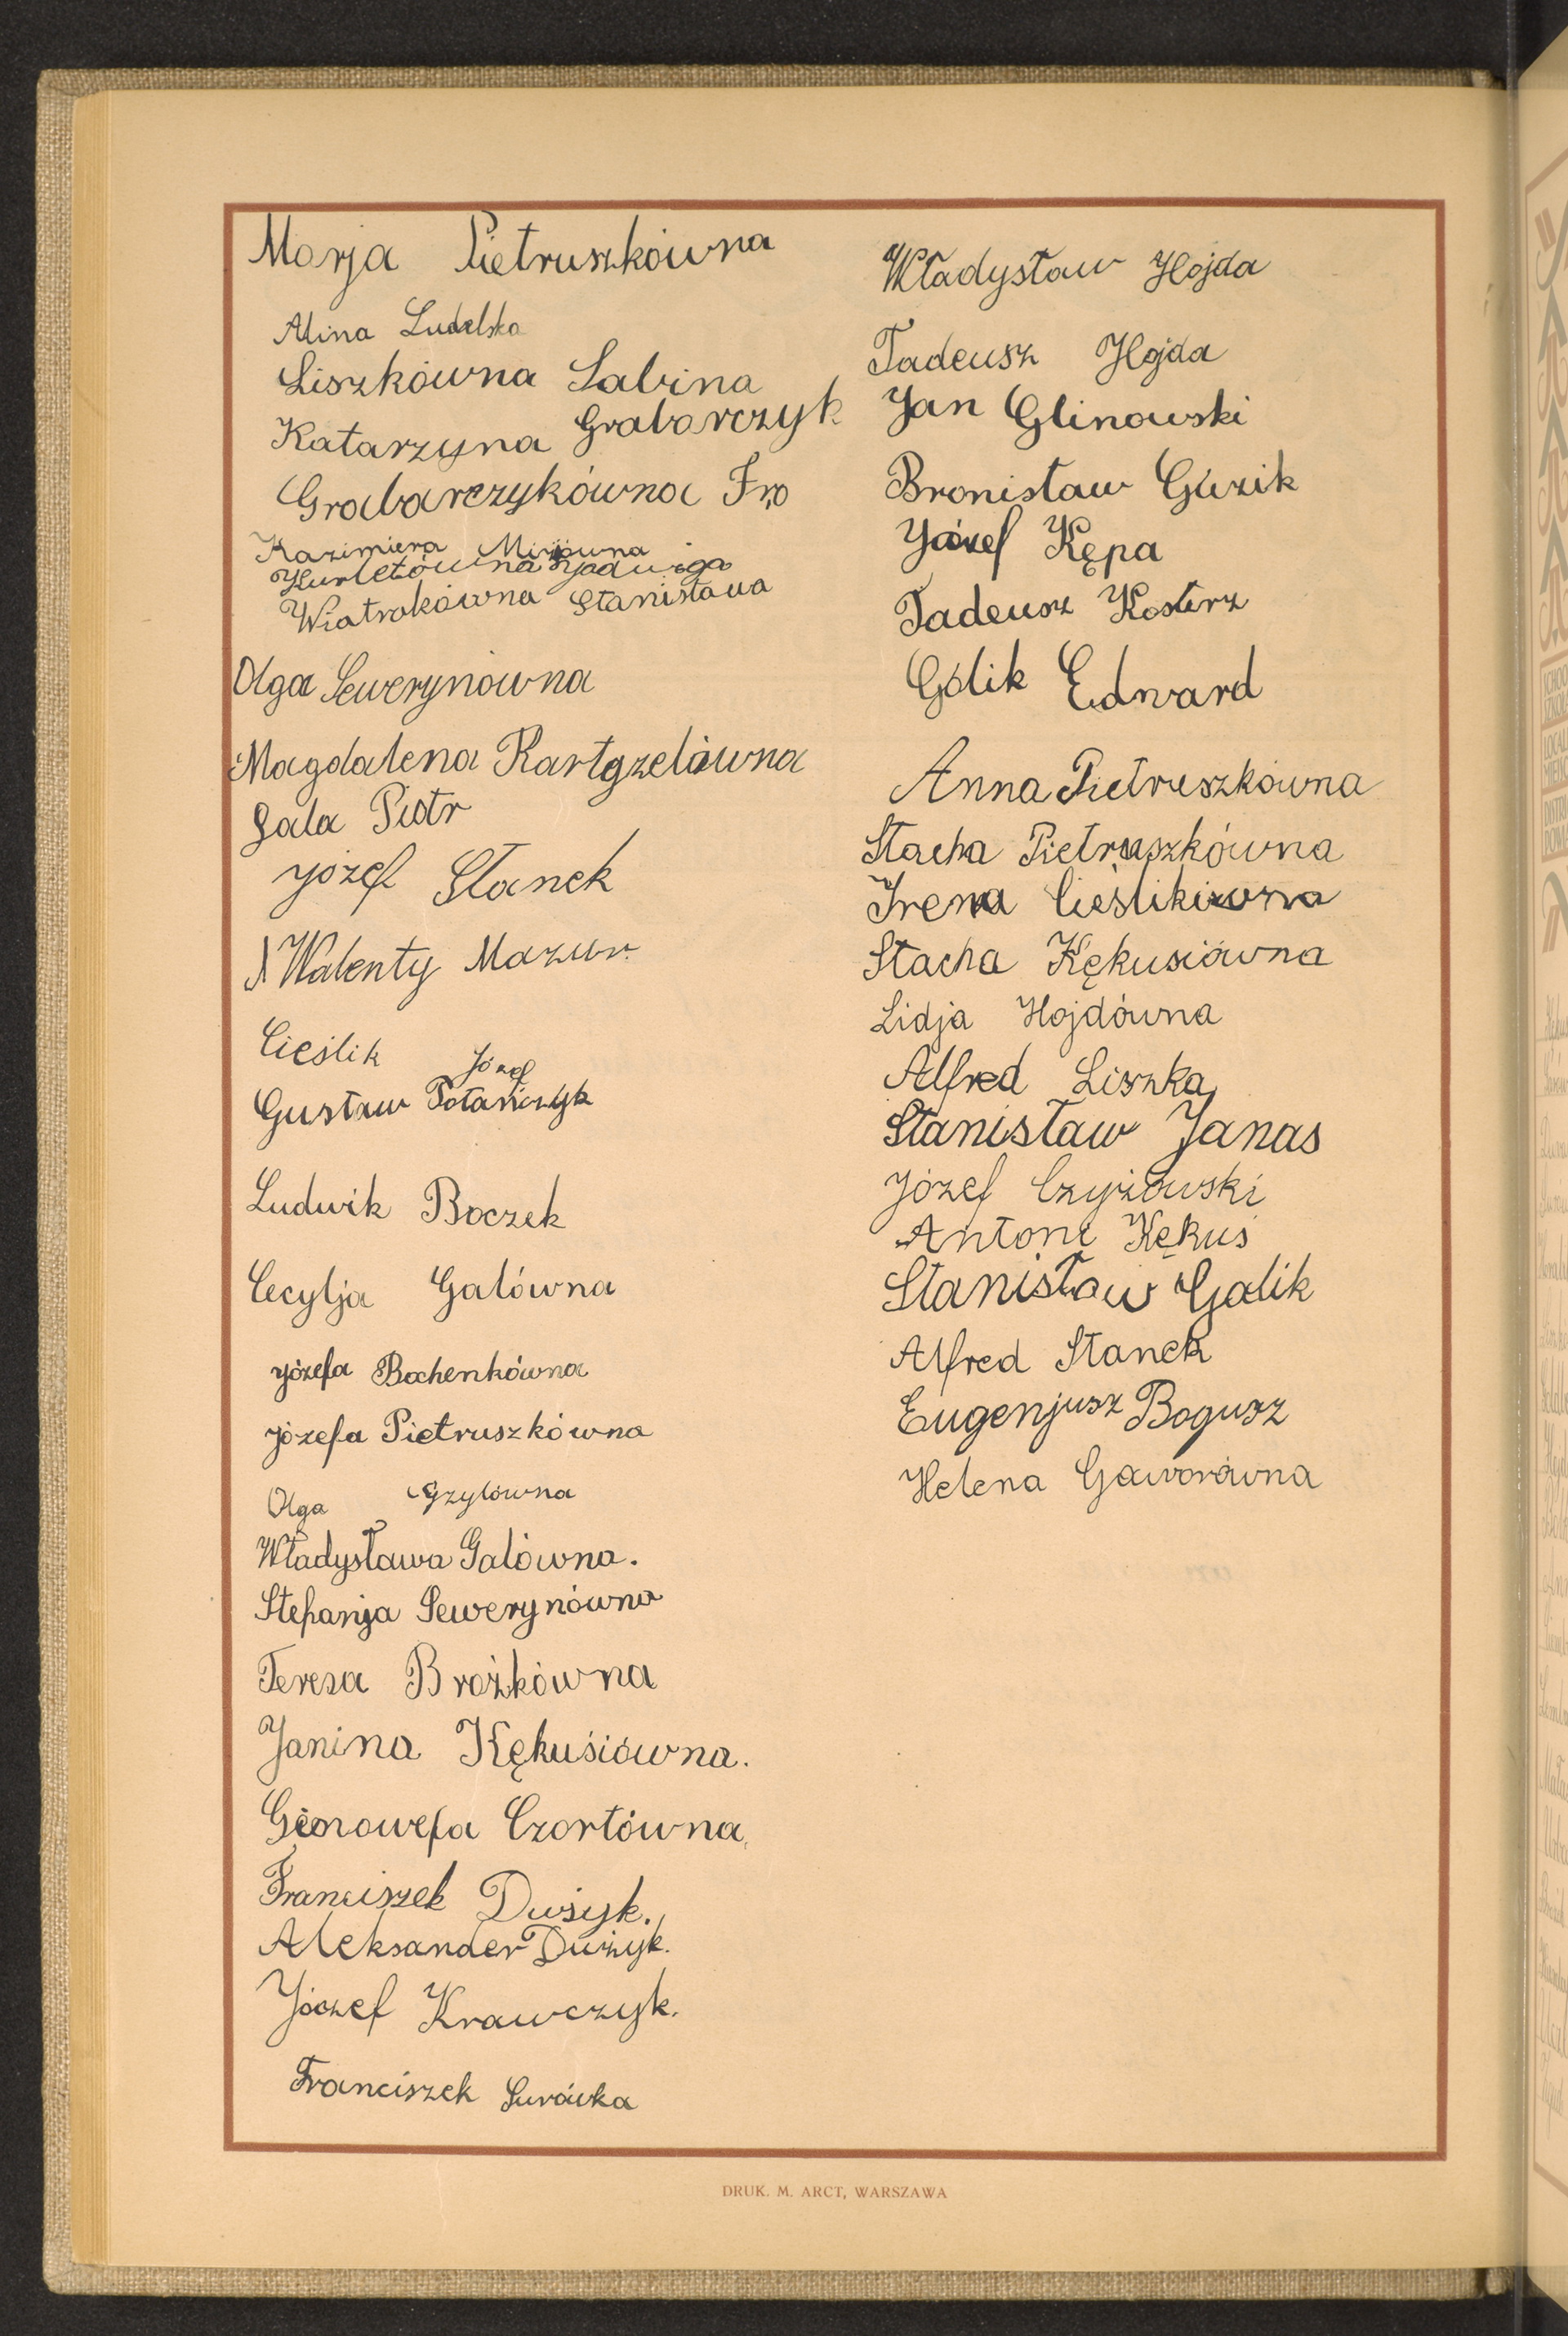 Marja Pietruszkówna
Alina Ludelska
Liszkówna Sabina
Katarzyna Grabarczyk
Grabarczykówna Fra
Kazimiera
Jadwiga
Wiatrokówna Stanisława
Olga Sewerynówna
Magdalena Kartgzelówna
Gala Piotr
Józef Stanek
Walenty Mazur.
Cieślik Józef
Gustaw Potańczyk
Ludwik Boczek
Cecylja Galówna
Józefa Bochenkówna
Józefa Pietruszkówna
Olga Gzylówna
Władysława Galówna.
Stefanja Sewerynówna
Teresa Brożkówna
Janina Kękuśiówna.
Genowefa Czortówna,
Franciszek Dużyk.
Aleksander Dużyk.
Józef Krawczyk.
Franciszek Surówka
Władysław Hojda
Tadeusz Hojda
Jan Glinowski
Bronisław Guzik
Józef Kępa
Tadeusz Kosterz
Golik Edward
Anna Pietruszkówna
Stacha Pietruszkówna
Irena Cieślikówna
Stacha Kękusiówna
Lidja Hojdówna
Alfred Liszka
Stanisław Janas
Józef Czyżowski
Antoni Kękuś
Stanisław Galik
Alfred Stanek
Eugenjusz Bogusz
Helena Gaworówna
DRUK. M. ARCT, WARSZAWA